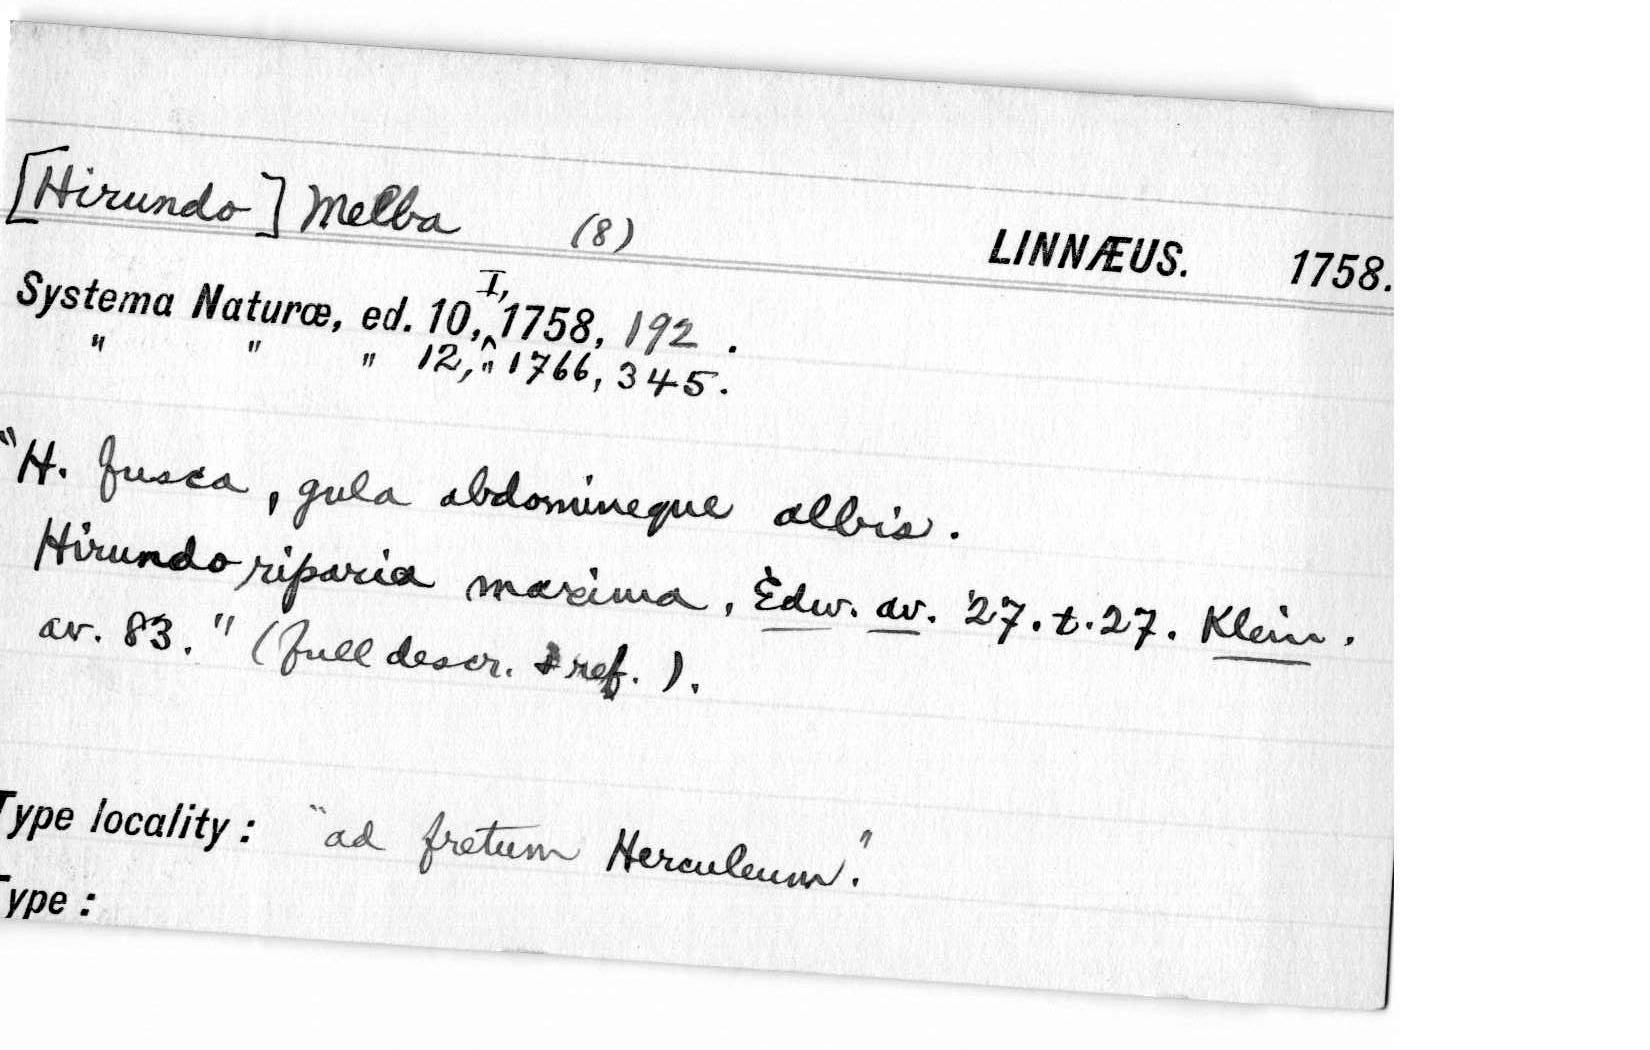 [Hirundo] Melba (8) LINNÆUS. 1758.
Systema Naturæ, ed. 10, I, 1758, 192 .
" " " 12, " 1766, 345.
"H. fusca, gula abdomineque albis.
Hirundo riparia maxima, Edw. av. 27. t. 27. Klein.
av. 83." (full descr. & ref.).
Type locality: "ad fretum Herculeum."
Type: